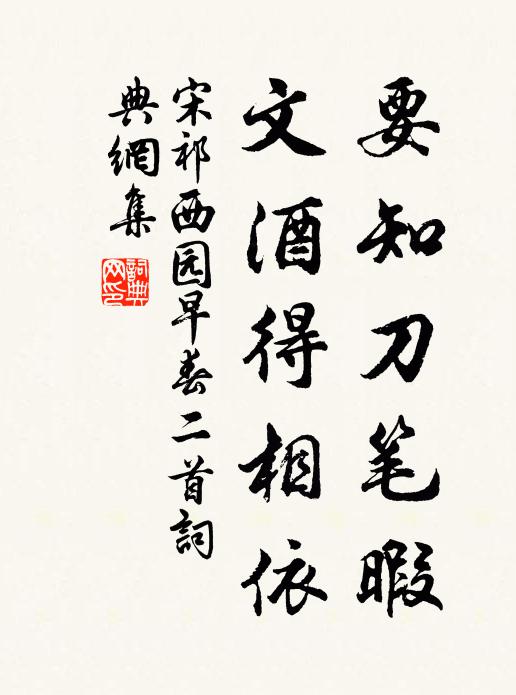 要知刀笔暇
文酒得相依
宋祁西园早春二首詞
典網集
詞典
网印